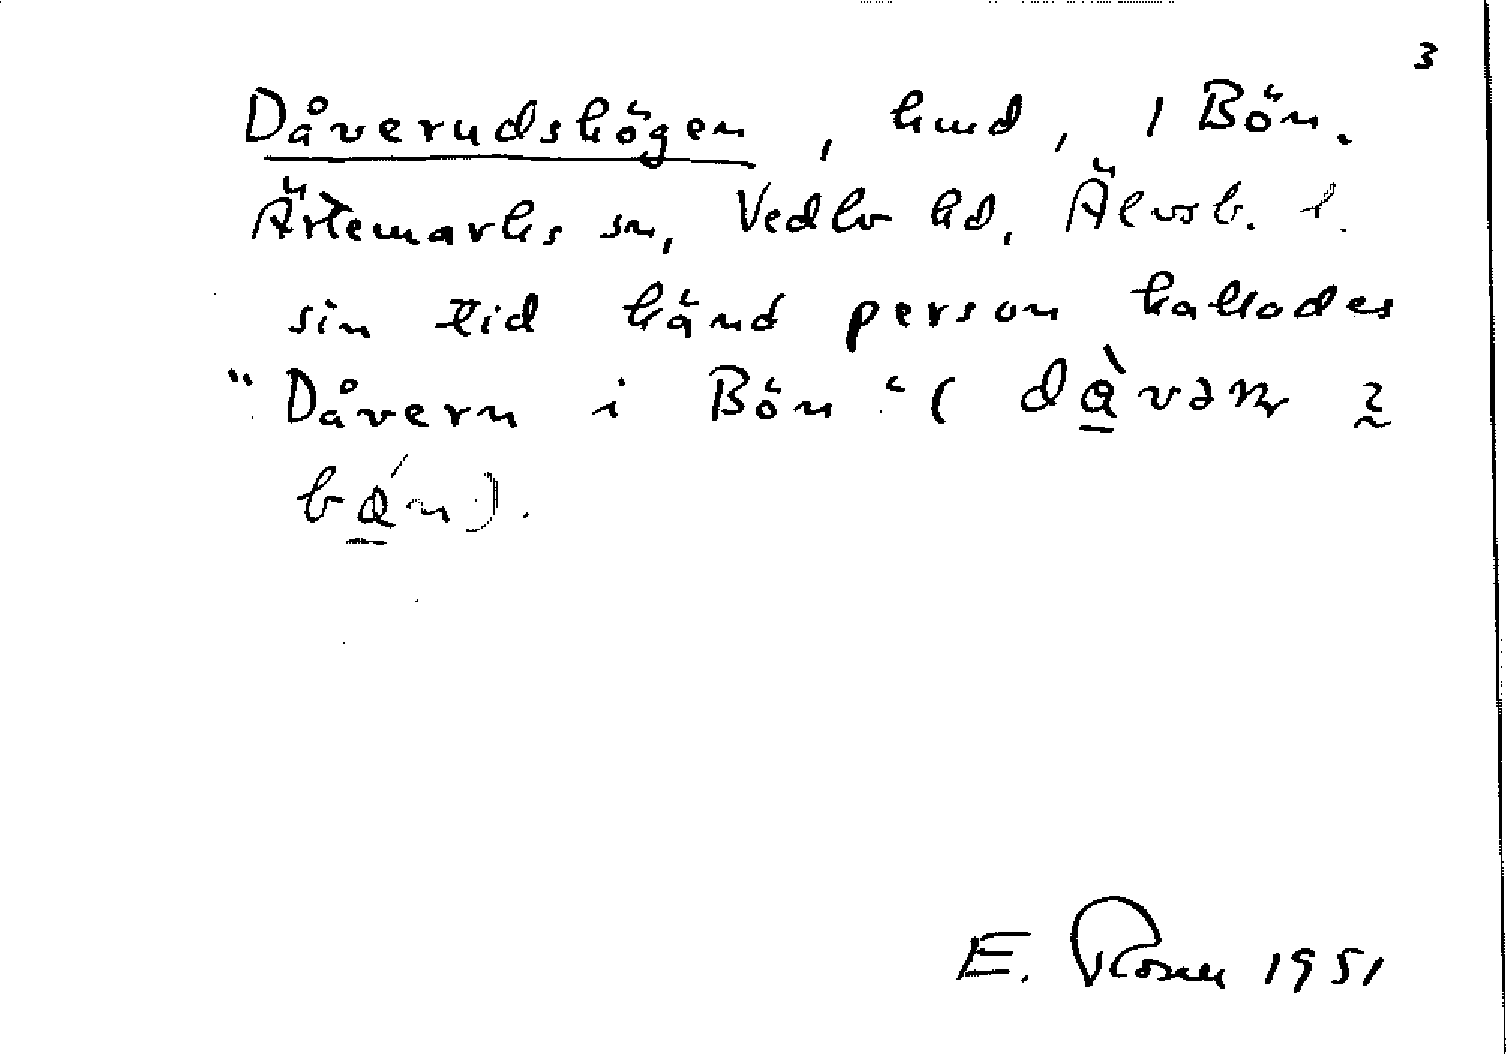 3
Dåverudshögen, hmd, 1 Bön.
Ärtemarks sn, Vedbo hd, Älvsb. l.
sin tid känd person kallades
"Dåvern i Bön" (dàvəṇ
bán).
E. 1951